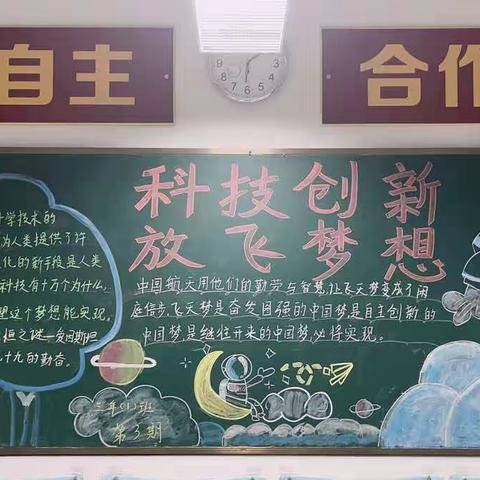 自主
合作
科技创新
放飞梦想
学技术的
为人类提供了许
化的新手段是人类
科技有十万个为什么,
这个梦想能实现。
爱因斯坦
九十九的勤奋。
中国航天用他们的勤劳与智慧,让飞天梦变成了闲
庭信步,飞天梦是奋发图强的中国梦是自主创新的
中国梦,是继往开来的中国梦,必将实现。
三年(1)班
第3期